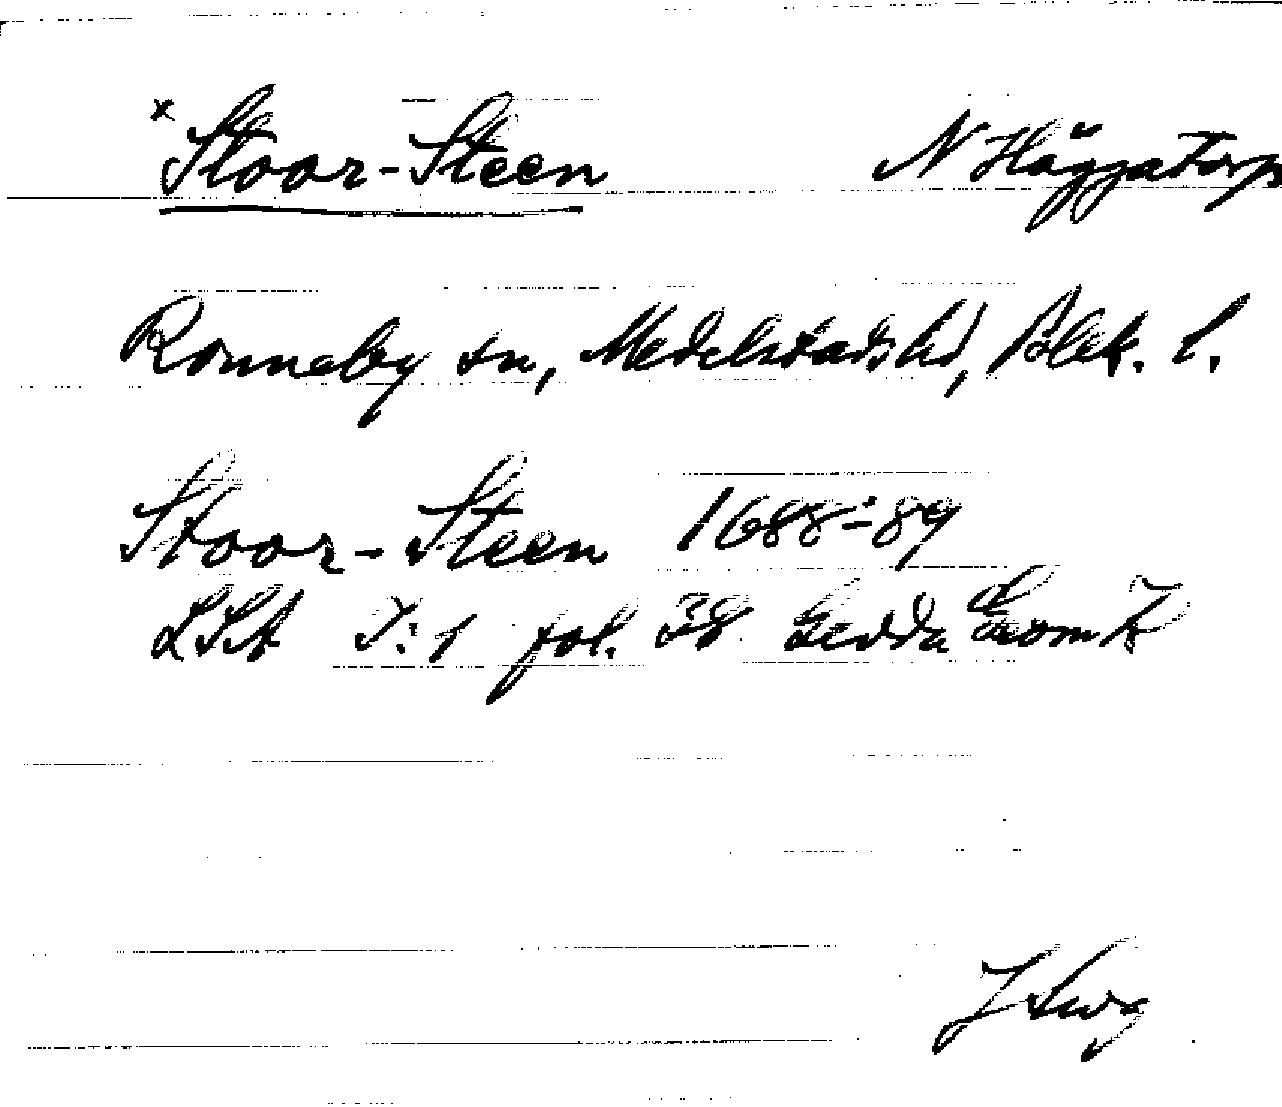 x Stoor-Steen N Häggatorp
Ronneby sn, Medelstads hd, Blek. l.
Stoor-Steen 1688-89
LSA I:1 fol. 38 Gedda